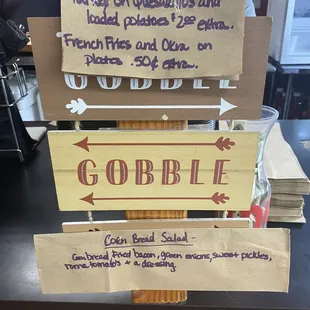 on Quesadillas and
loaded potatoes $2.00 extra.
French Fries and Okra on
plates .50¢ extra.
GOBBLE
GOBBLE
Corn Bread Salad -
Cornbread, fried bacon, green onions, sweet pickles,
roma tomatoes + a dressing.